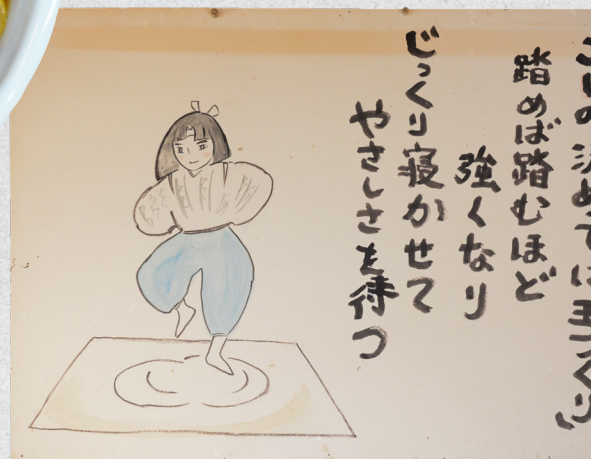 こしの決めては玉つくり」
踏めば踏むほど
強くなり
じっくり寝かせて
やさしさを待つ